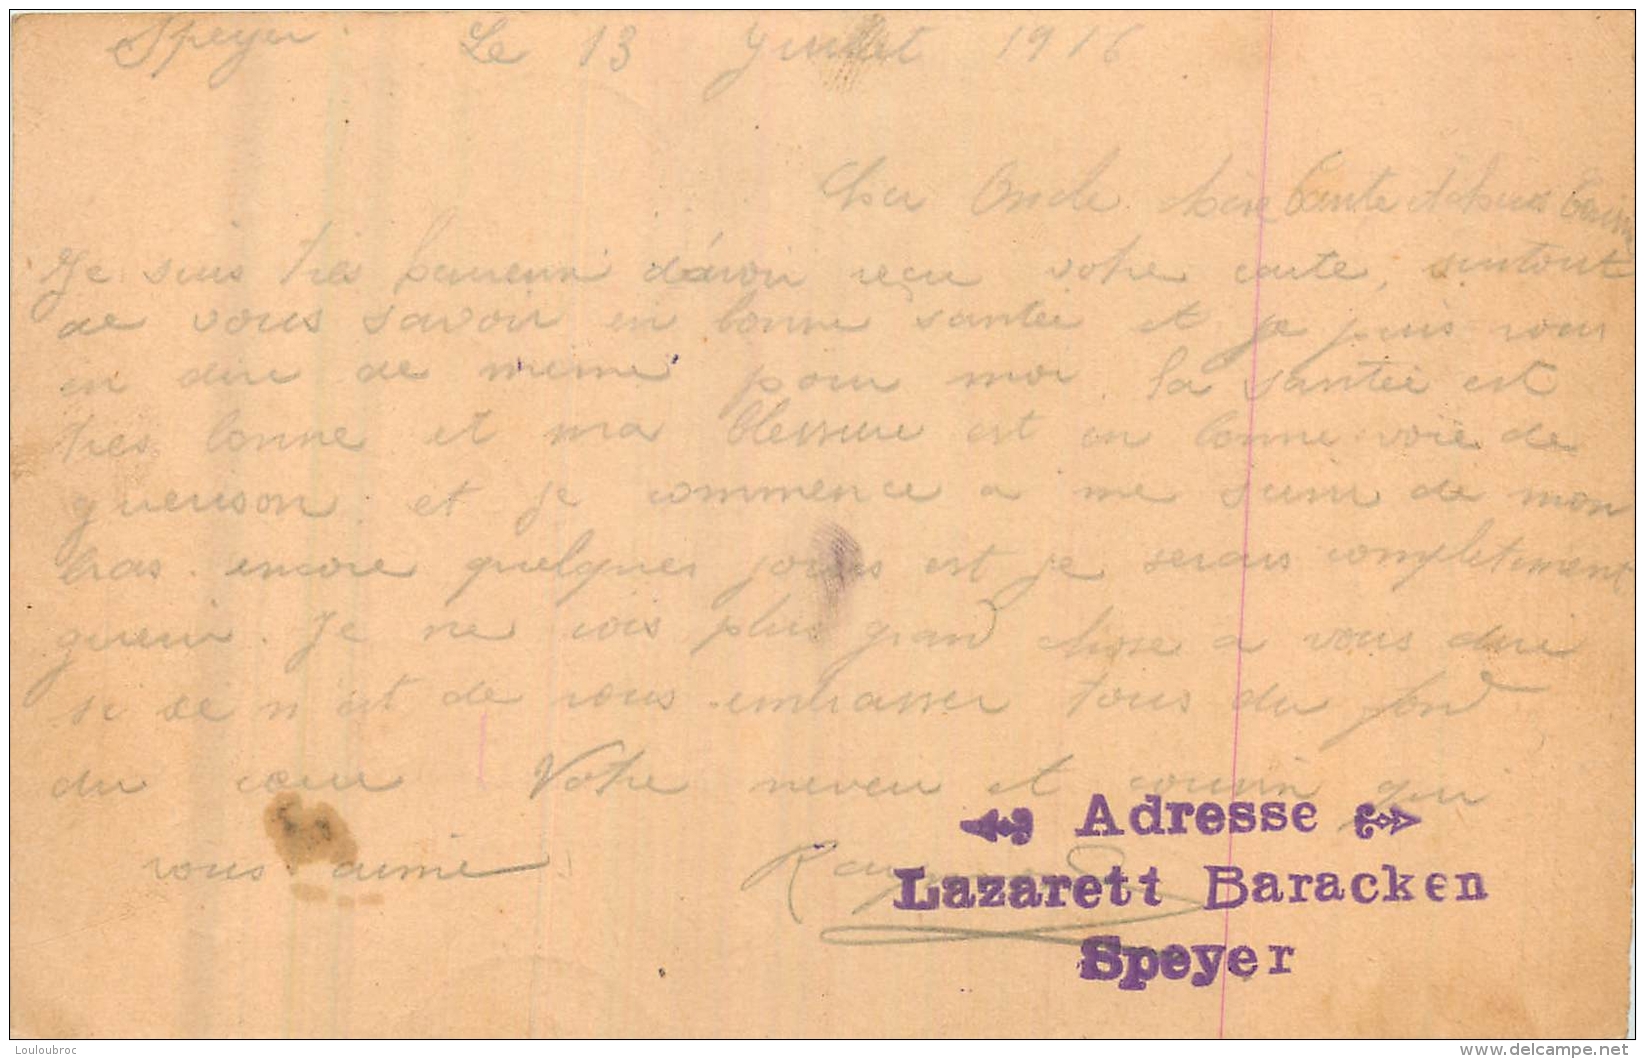 Speyer Le 13 Juillet 1916
Cher Oncle chère tante et chers Cousins
Je suis tres heureux d'avoir reçu votre carte, surtout
de vous savoir en bonne santée et je puis vous
en dire de meme pour moi la santée est
tres bonne et ma blessure est en bonne voie de
guerison et je commence a me servir de mon
bras. encore quelques jours est je serais completement
gueri. Je ne vois plus grand chose a vous dire
si se n'est de vous embrasser tous du fond
du cœur Votre neveu et cousin qui
vous aime Raymond
Adresse
Lazarett Baracken
Speyer
Louloubroc
www.delcampe.net